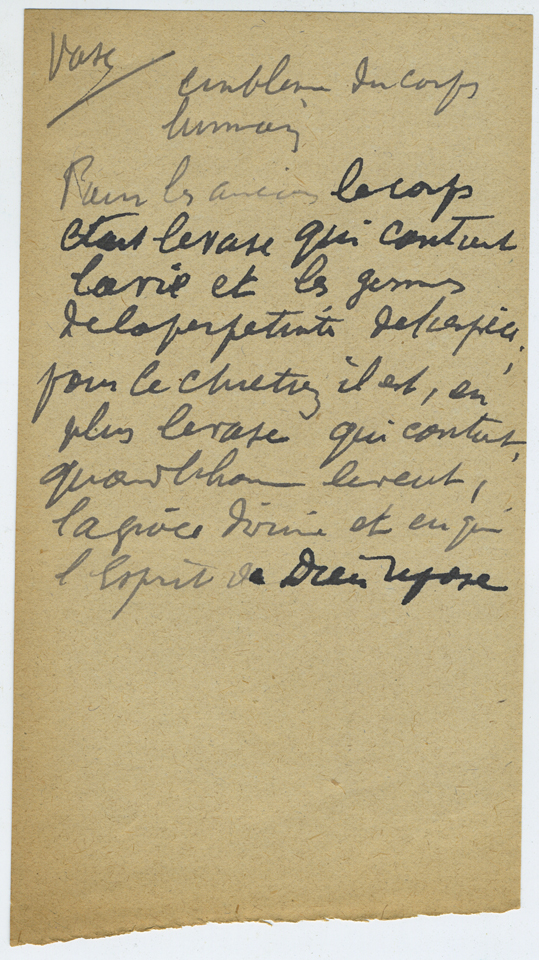 Vase
emblème du corps
humain
Pour les anciens le corps
était le vase qui contient
la vie et les germes
de la perpétuité de l'espèce,
pour le chrétien il est, en
plus le vase qui contient,
quand l'homme le veut,
la grâce divine et en qui
l'Esprit de Dieu repose